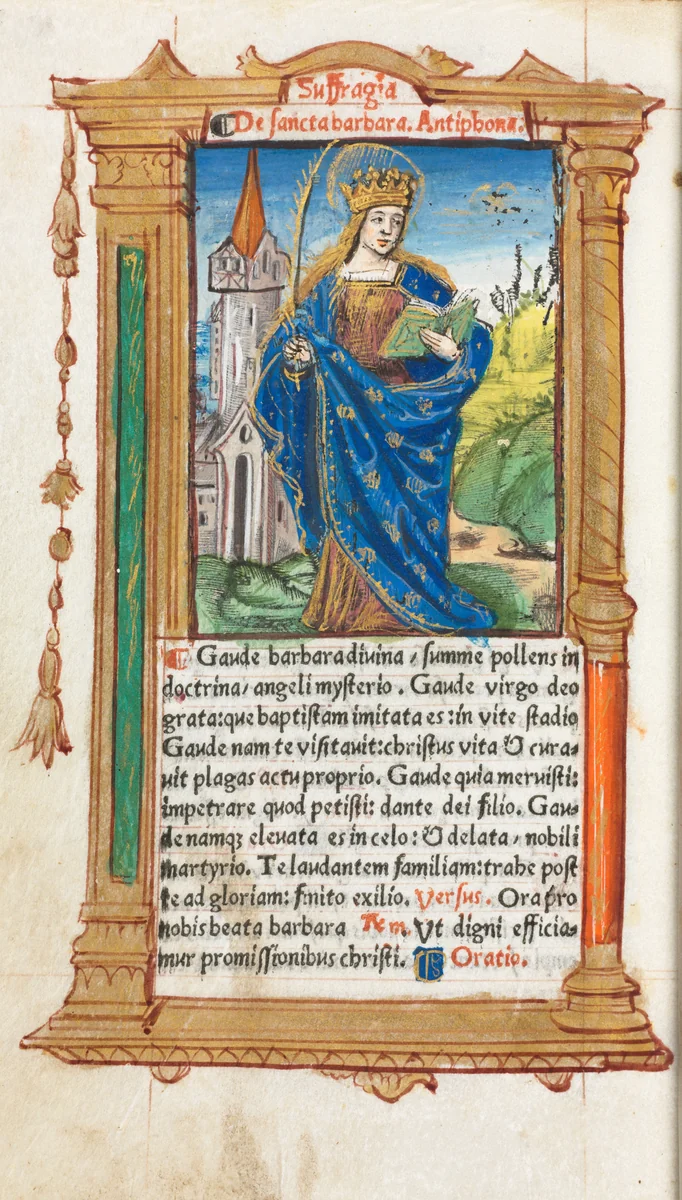 Suffragia
De sancta barbara. Antiphona.
Gaude barbara diuina / summe pollens in
doctrina / angeli mysterio . Gaude virgo deo
grata: que baptistam imitata es : in vite stadio
Gaude nam te visitauit: christus vita & cura-
uit plagas actu proprio. Gaude quia meruisti:
impetrare quod petisti: dante dei filio. Gau-
de namqꝫ eleuata es in celo : & delata / nobili
martyrio. Te laudantem familiam: trahe post
te ad gloriam: finito exilio. Versus. Ora pro
nobis beata barbara Vt digni efficia-
mur promissionibus christi. Oratio.